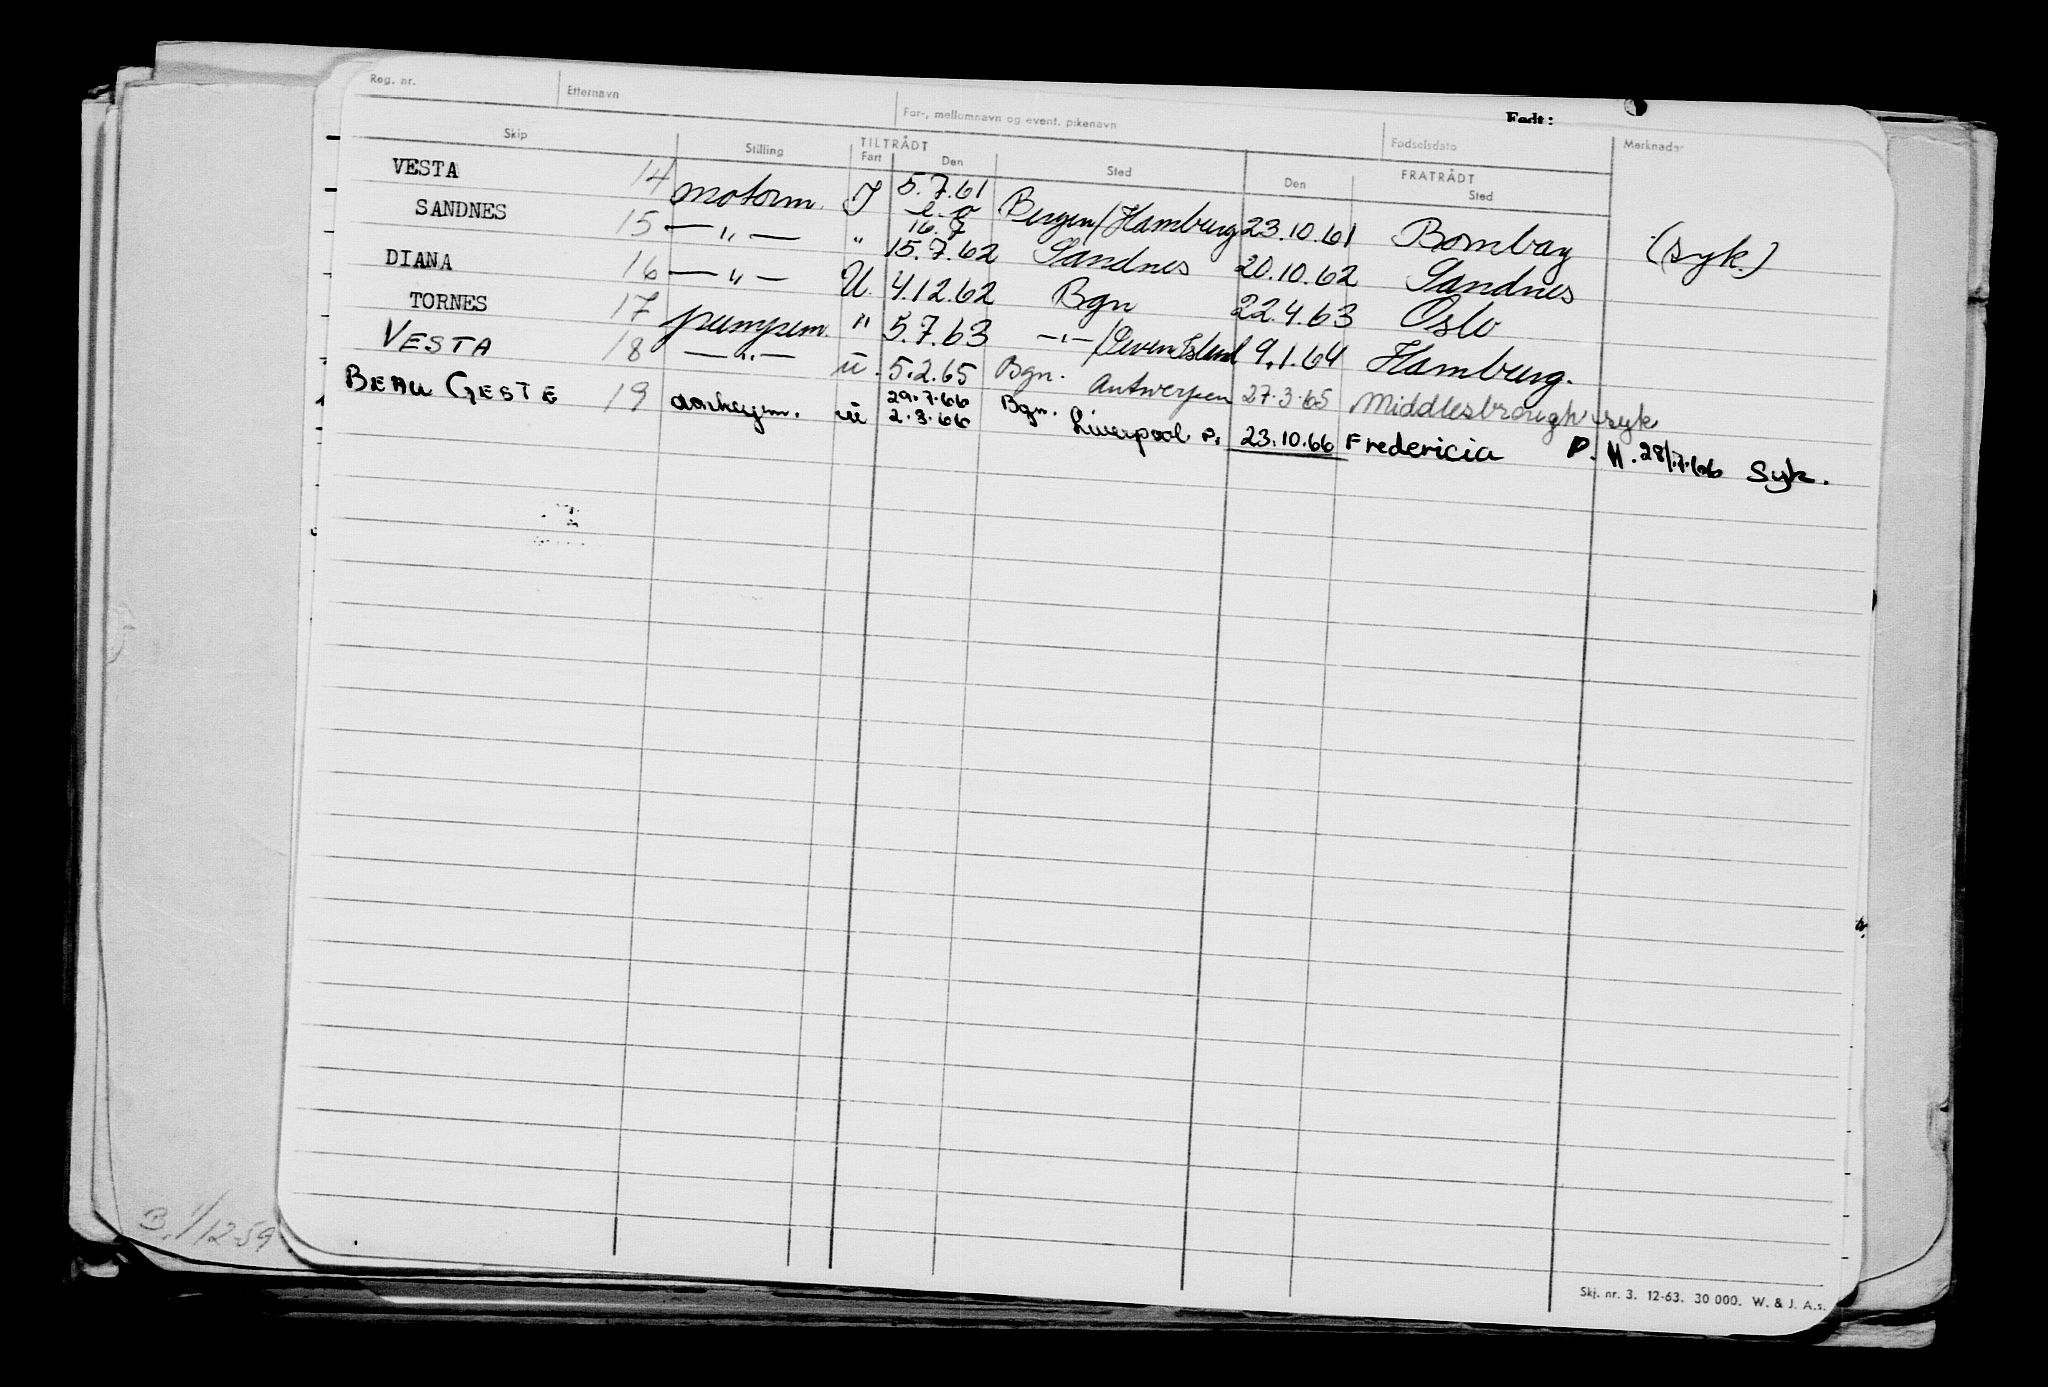 Reg. nr. Etternavn For-, mellomnavn og event. pikenavn Fødselsdato Født: Merknader
Skip Stilling TILTRÅDT FRATRÅDT
Fart Den Sted Den Sted
VESTA 14 motorm. J 5.7.61 Bergen/Hamburg 23.10.61 Bombay (syk.)
16.7
SANDNES 15 —"— " 15.7.62 Sandnes 20.10.62 Sandnes
DIANA 16 —"— U. 4.12.62 Bgn 22.4.63 Oslo
TORNES 17 pumpem. " 5.7.63 —"—/Seven Island 9.1.64 Hamburg.
VESTA 18 —"— u. 5.2.65 Bgn. Antwerpen 27.3.65 Middlesbrough syk
BEAU GESTE 19 u 29.7.66 Bgn. Liverpool P. 23.10.66 Fredericia P. H. 28/7.66 Syk.
2.8.66
B. 1/12-59
Skj. nr. 3. 12-63. 30 000. W. & J. A.s.